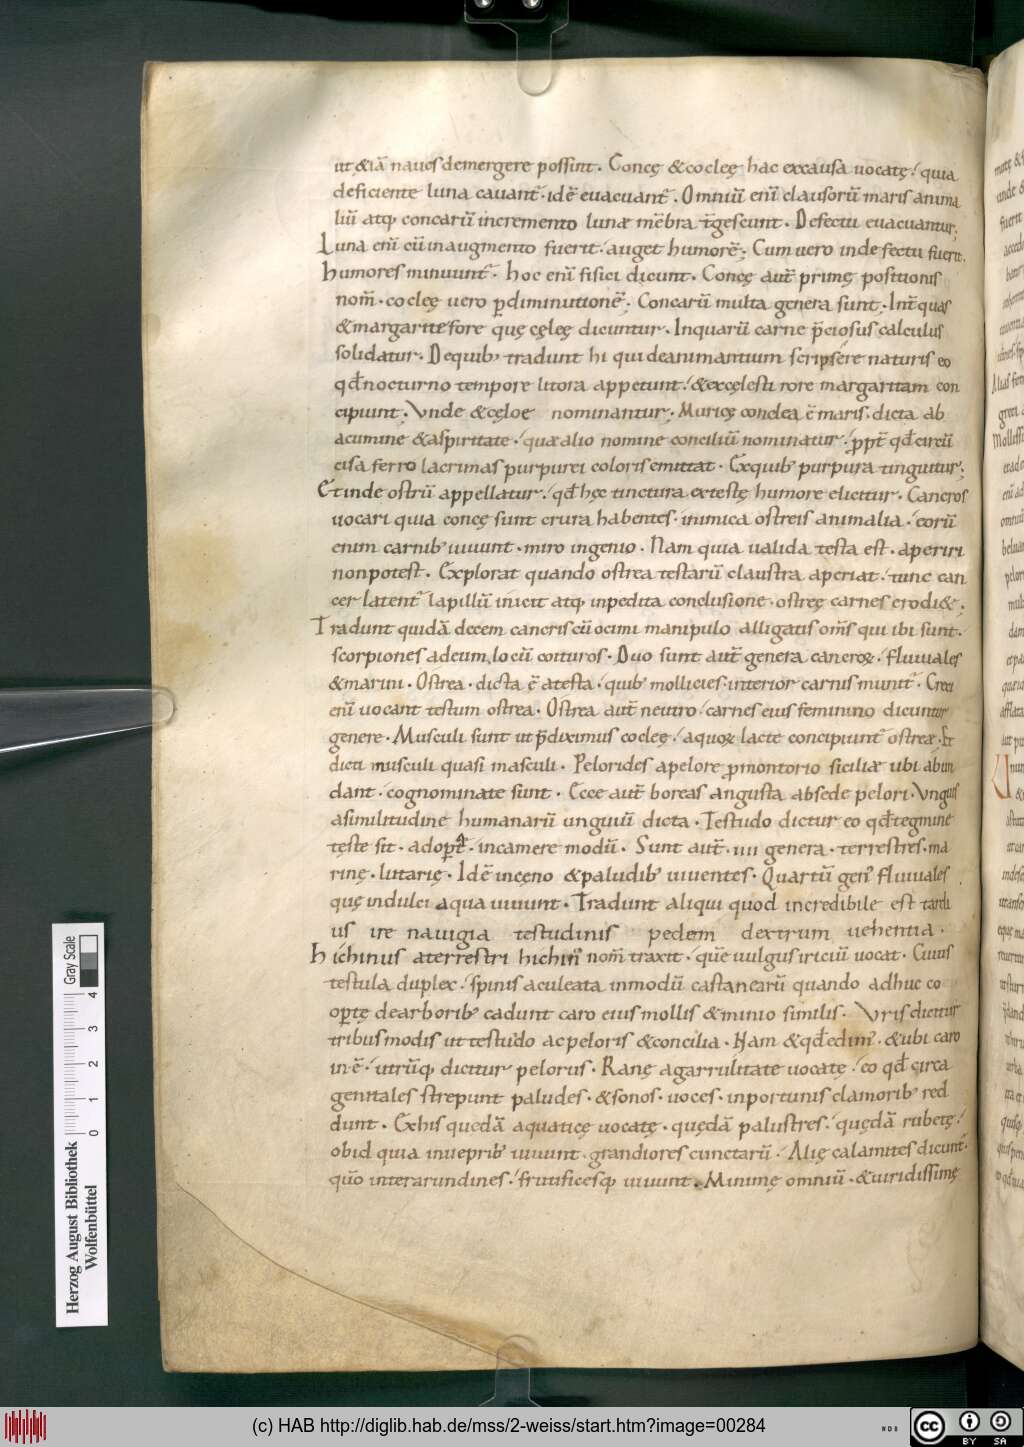 ut &iā naues demergere possint. Concę & cocleę hac ex causa uocatę. quia
deficiente luna cauant᷑. idē euacuant᷑. Omniū eni̅ clausorū maris anima
liū atq; concarū incremento lunæ mēbra t̅gescunt. Defectu euacuantur;
Luna eni̅ cū in augmento fuerit. auget humorē; Cum uero in defectu fuerit.
humores minuunt᷑. hoc eni̅ fisici dicunt. Concę aut̅ primę positionis
nom̅. cocleę uero ꝑ diminutionē; Concarū multa genera sunt; Int̅ quas
& margaritę fore quę cęleę dicuntur. In quarū carne p̅ciosus calculus
solidatur. De quib; tradunt hi qui de animantium scripsere naturis eo
qđ nocturno tempore litora appetunt. & ex cęlesti rore margaritam con
cipiunt. Vnde & cęloe nominantur; Muricę conclea ē maris. dicta ab
acumine & aspiritate. quæ alio nomine conciliū nominatur. ꝓpt̅ qđ circū
cisa ferro lacrimas purpurei coloris emittat. Ex quib; purpura tinguitur;
Et inde ostrū appellatur. qđ hęc tinctura ex testę humore elicitur. Cancros
uocari quia concę sunt crura habentes. inimica ostreis animalia. eorū
enim carnib; uiuunt. miro ingenio. Nam quia ualida testa est. aperiri
non potest. Explorat quando ostrea testarū claustra aperiat. tunc can
cer latent᷑ lapillū inicit atq; inpedita conclusione. ostreę carnes erodi&;
Tradunt quidā decem cancris cū ocimi manipulo alligatis om̅s qui ibi sunt.
scorpiones ad eum locū coituros. Duo sunt aut̅ genera cancroꝝ. fluuiales
& marini. Ostrea. dicta ē a testa. quib; mollicies interior carnis munit᷑. Greci
eni̅ uocant testum ostrea. Ostrea aut̅ neutro. carnes eius feminino dicuntur
genere. Musculi sunt ut p̅diximus cocleę. a quoꝝ lacte concipiunt᷑ ostreæ. Et
dicti musculi quasi masculi. Pelorides a peloro ꝓmontorio siciliæ ubi abun
dant. cognominate sunt. Ecce aut̅ boreas angusta ab sede pelori. Vnguis
a similitudine humanarū unguiū dicta. Testudo dictur eo qđ tegmine
tęste sit. adoꝑt̅. in camere modū. Sunt aut̅. iiii genera. terrestres. ma
rinę. lutarię. Idē in cęno & paludib; uiuentes. Quartū gen᷒ fluuiales
quę in dulci aqua uiuunt. Tradunt aliqui quod incredibile est tardi
us ire nauigia testudinis pedem dextrum uehentia.
hichinus a terrestri hichin᷒ nom̅ traxit. quē uulgus iriciū uocat. Cuius
testula duplex. spinis aculeata in modū castanearū quando adhuc co
oꝑtę de arborib; cadunt caro eius mollis & minio similis. Vris dicitur
tribus modis ut testudo ac peloris & concilia. Nam & qđ edim᷒. & ubi caro
in ē. utrūq; dicitur pelorus. Ranę a garrulitate uocatę. eo qđ circa
genitales strepunt paludes. & sonos. uoces. inportunis clamorib; red
dunt. Ex his quedā aquaticę uocatę. quędā palustres. quędā rubetę.
ob id quia in ueprib; uiuunt. grandiores cunctarū. Alię calamites dicunt᷑.
quō inter arundines. frutificesq; uiuunt. Minimę omniū. & uiridissimę
Herzog August Bibliothek
Wolfenbüttel
0 1 2 3 4
Gray Scale
(c) HAB http://diglib.hab.de/mss/2-weiss/start.htm?image=00284
WDB
cc
BY SA